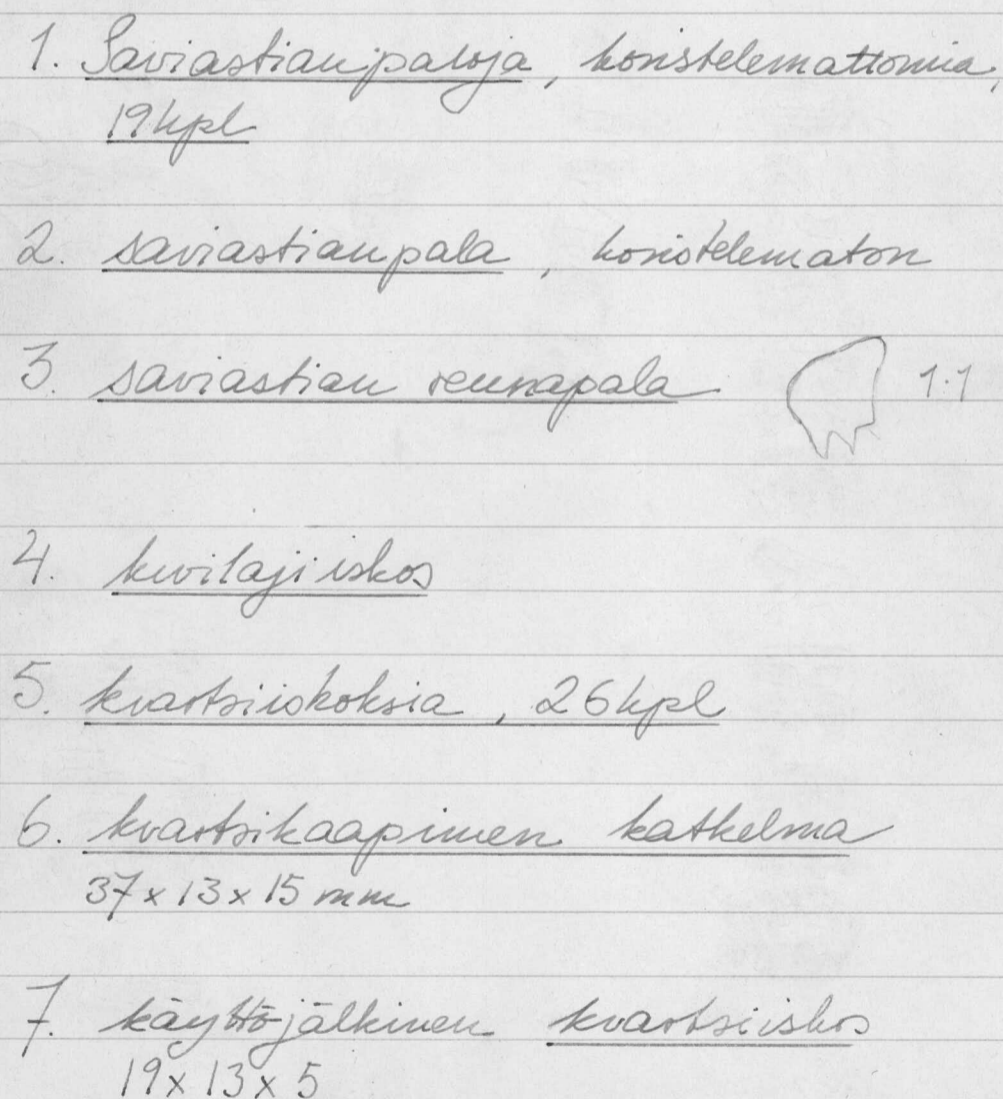 1. Saviastianpaloja, koristelemattomia,
19 kpl
2. saviastianpala, koristelematon
3. saviastian reunapala 1:1
4. kivilaji iskos
5. kvartsiiskoksia, 26 kpl
6. kvartsikaapimen katkelma
37 x 13 x 15 mm
7. käyttöjälkinen kvartsiiskos
19 x 13 x 5